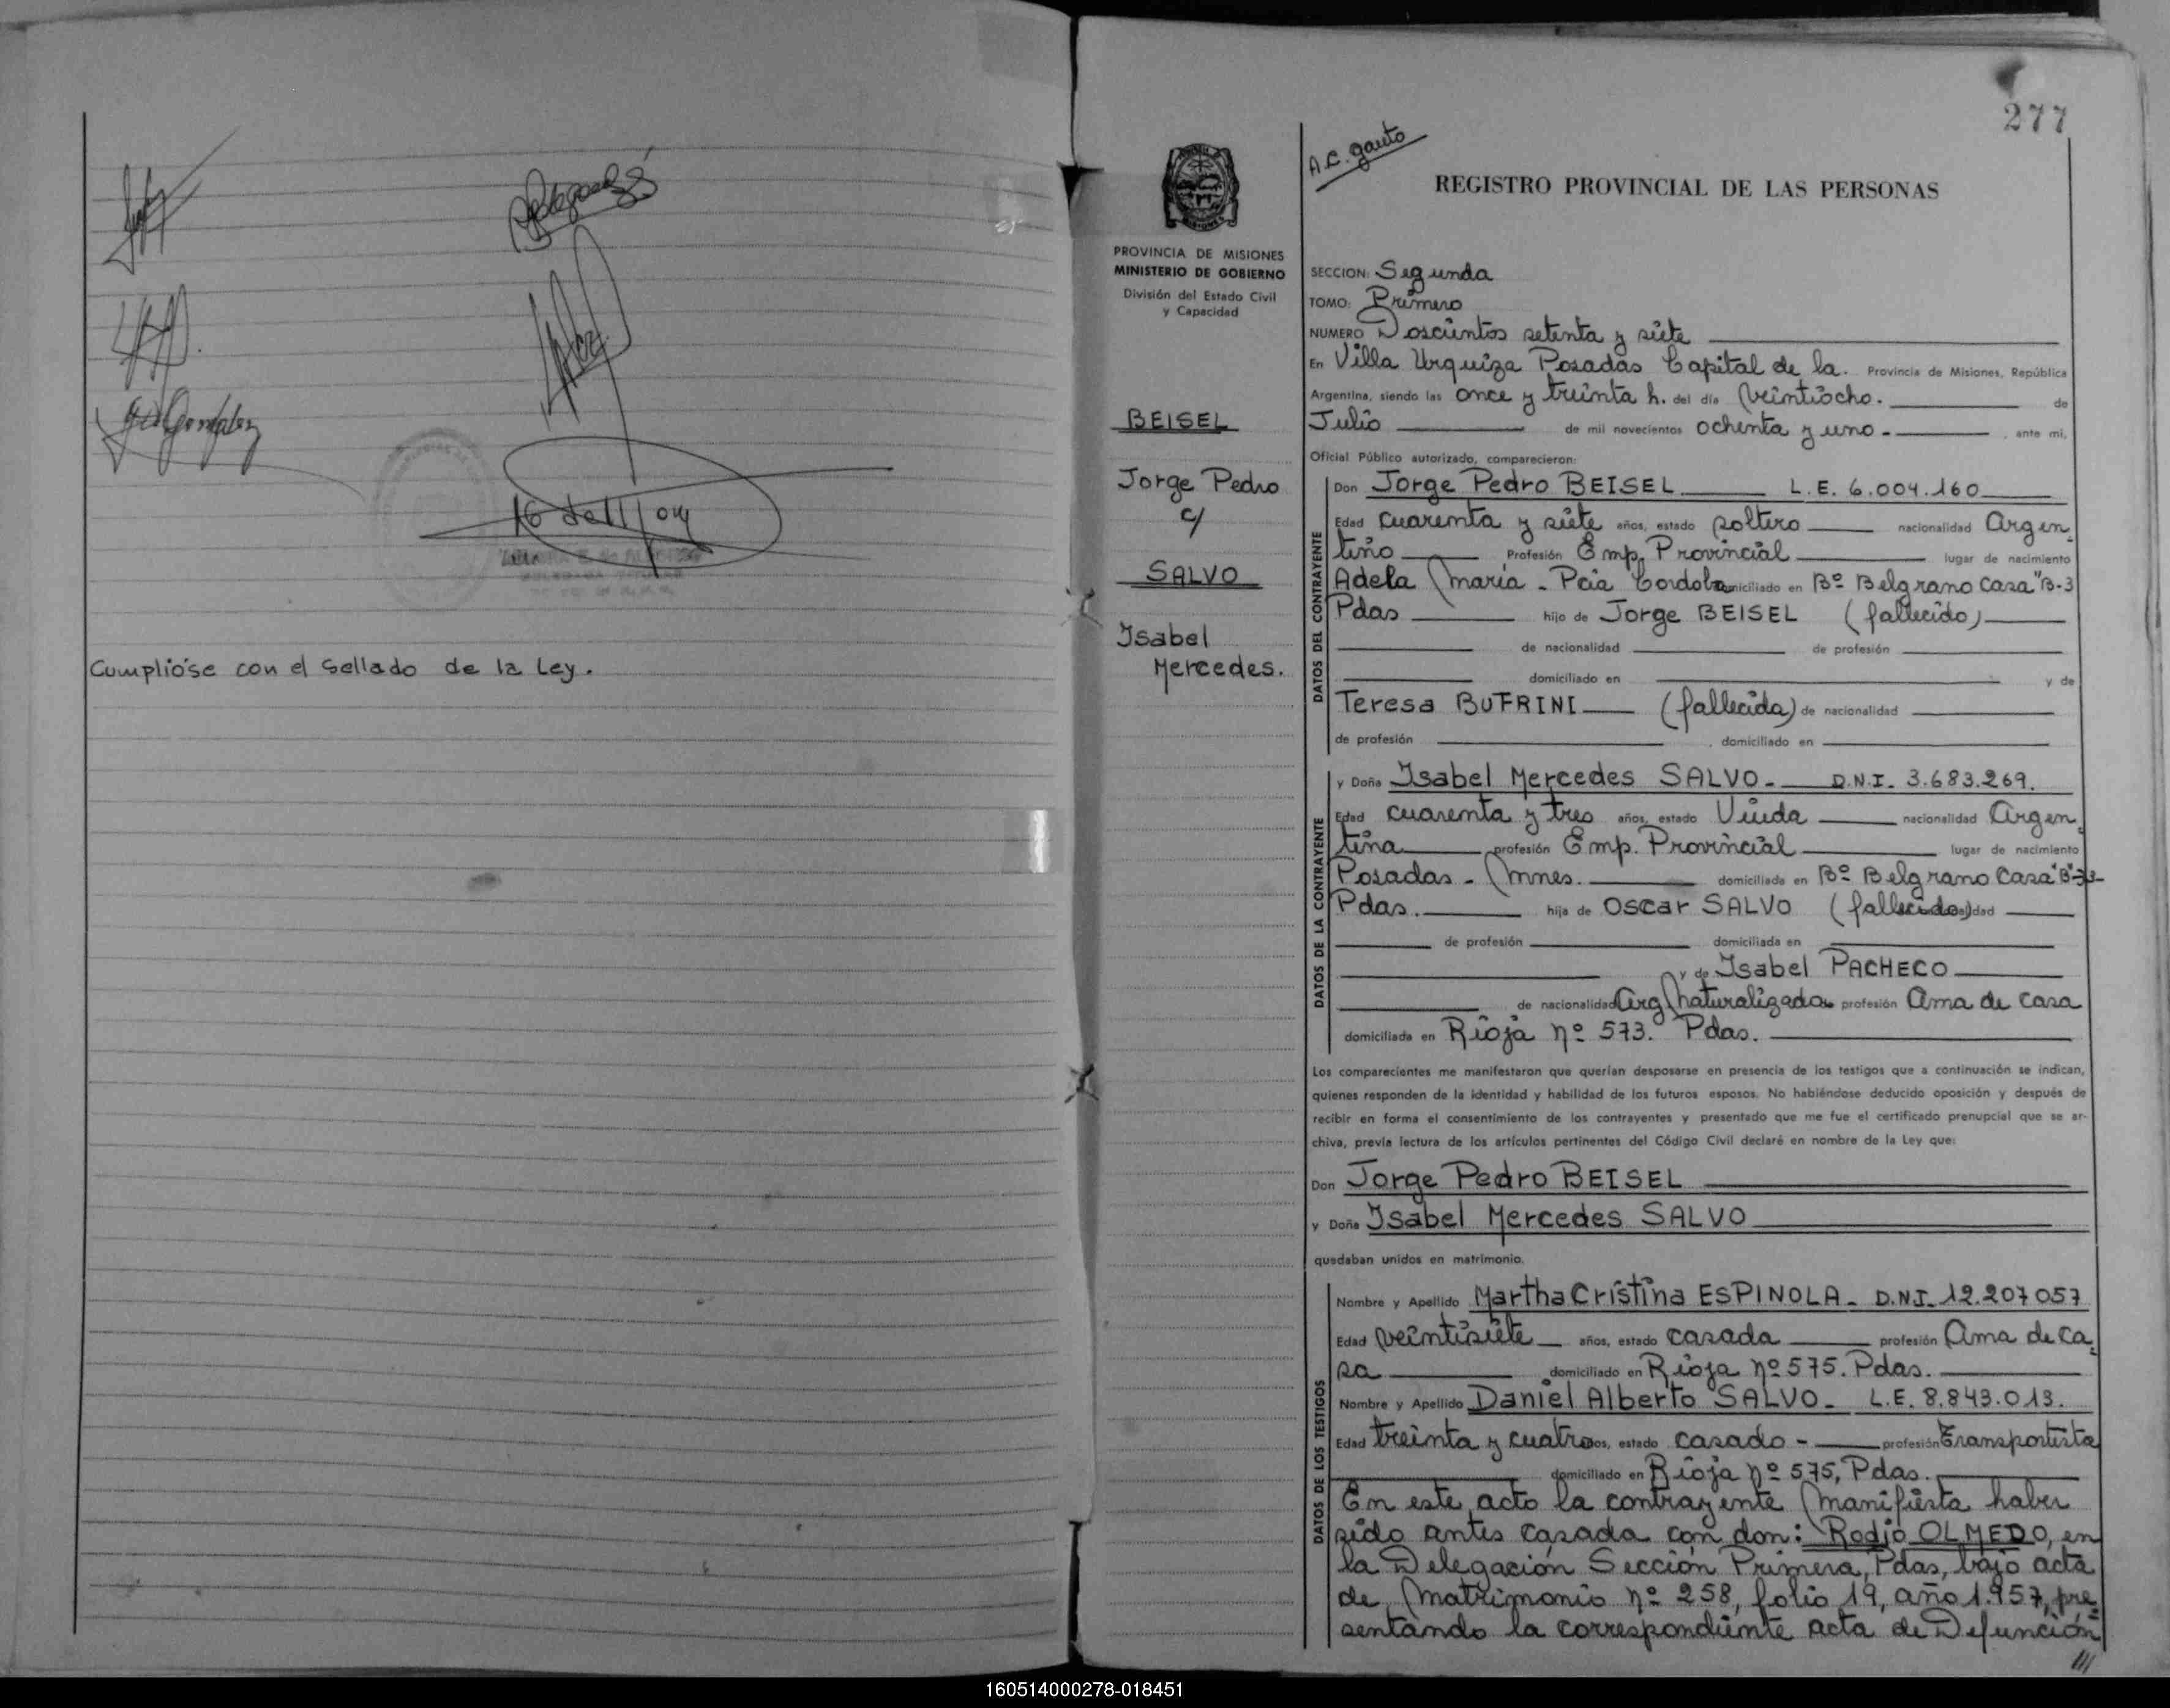 Cumplióse con el Sellado de la Ley.
277
A.C. Gauto
REGISTRO PROVINCIAL DE LAS PERSONAS
PROVINCIA DE MISIONES
MINISTERIO DE GOBIERNO
División del Estado Civil
y Capacidad
BEISEL
Jorge Pedro
c/
SALVO
Isabel
Mercedes.
SECCION: Segunda
TOMO: Primero
NUMERO Doscientos setenta y siete
En Villa Urquiza Posadas Capital de la. Provincia de Misiones, República
Argentina, siendo las once y treinta h. del día veintiocho. de
Julio de mil novecientos ochenta y uno - , ante mi,
Oficial Público autorizado, comparecieron:
DATOS DEL CONTRAYENTE
Don Jorge Pedro BEISEL L.E. 6.004.160
Edad cuarenta y siete años, estado soltero nacionalidad Argen
tino Profesión Emp. Provincial lugar de nacimiento
Adela María - Pcia Cordoba domiciliado en Bº Belgrano Casa "B-3
Pdas hijo de Jorge BEISEL (fallecido)
de nacionalidad de profesión
domiciliado en y de
Teresa BUFRINI (fallecida) de nacionalidad
de profesión , domiciliado en
DATOS DE LA CONTRAYENTE
y Doña Isabel Mercedes SALVO - D.N.I. 3.683.269.
Edad cuarenta y tres años, estado Viuda nacionalidad Argen
tina profesión Emp. Provincial lugar de nacimiento
Posadas - Mnes. domiciliada en Bº Belgrano Casa "B"-33-
Pdas. hija de Oscar SALVO (fallecido)
de profesión domiciliada en
y de Isabel PACHECO
de nacionalidad Arg Naturalizada profesión Ama de casa
domiciliada en Rioja nº 573. Pdas.
Los comparecientes me manifestaron que querían desposarse en presencia de los testigos que a continuación se indican,
quienes responden de la identidad y habilidad de los futuros esposos. No habiéndose deducido oposición y después de
recibir en forma el consentimiento de los contrayentes y presentado que me fue el certificado prenupcial que se ar-
chiva, previa lectura de los artículos pertinentes del Código Civil declaré en nombre de la Ley que:
Don Jorge Pedro BEISEL
y Doña Isabel Mercedes SALVO
quedaban unidos en matrimonio.
DATOS DE LOS TESTIGOS
Nombre y Apellido Martha Cristina ESPINOLA - D.N.I. 12.207 057
Edad veintisiete años, estado casada profesión Ama de ca
sa domiciliado en Rioja nº 575. Pdas.
Nombre y Apellido Daniel Alberto SALVO - L.E. 8.843.013.
Edad treinta y cuatro años, estado casado - profesión Transportista
domiciliado en Rioja nº 575, Pdas.
En este acto la contrayente manifiesta haber
sido antes casada con don: Rodio OLMEDO, en
la Delegación Sección Primera, Pdas, bajo acta
de Matrimonio nº 258, folio 19, año 1.957, pre
sentando la correspondiente acta de Defunción
///
160514000278-018451